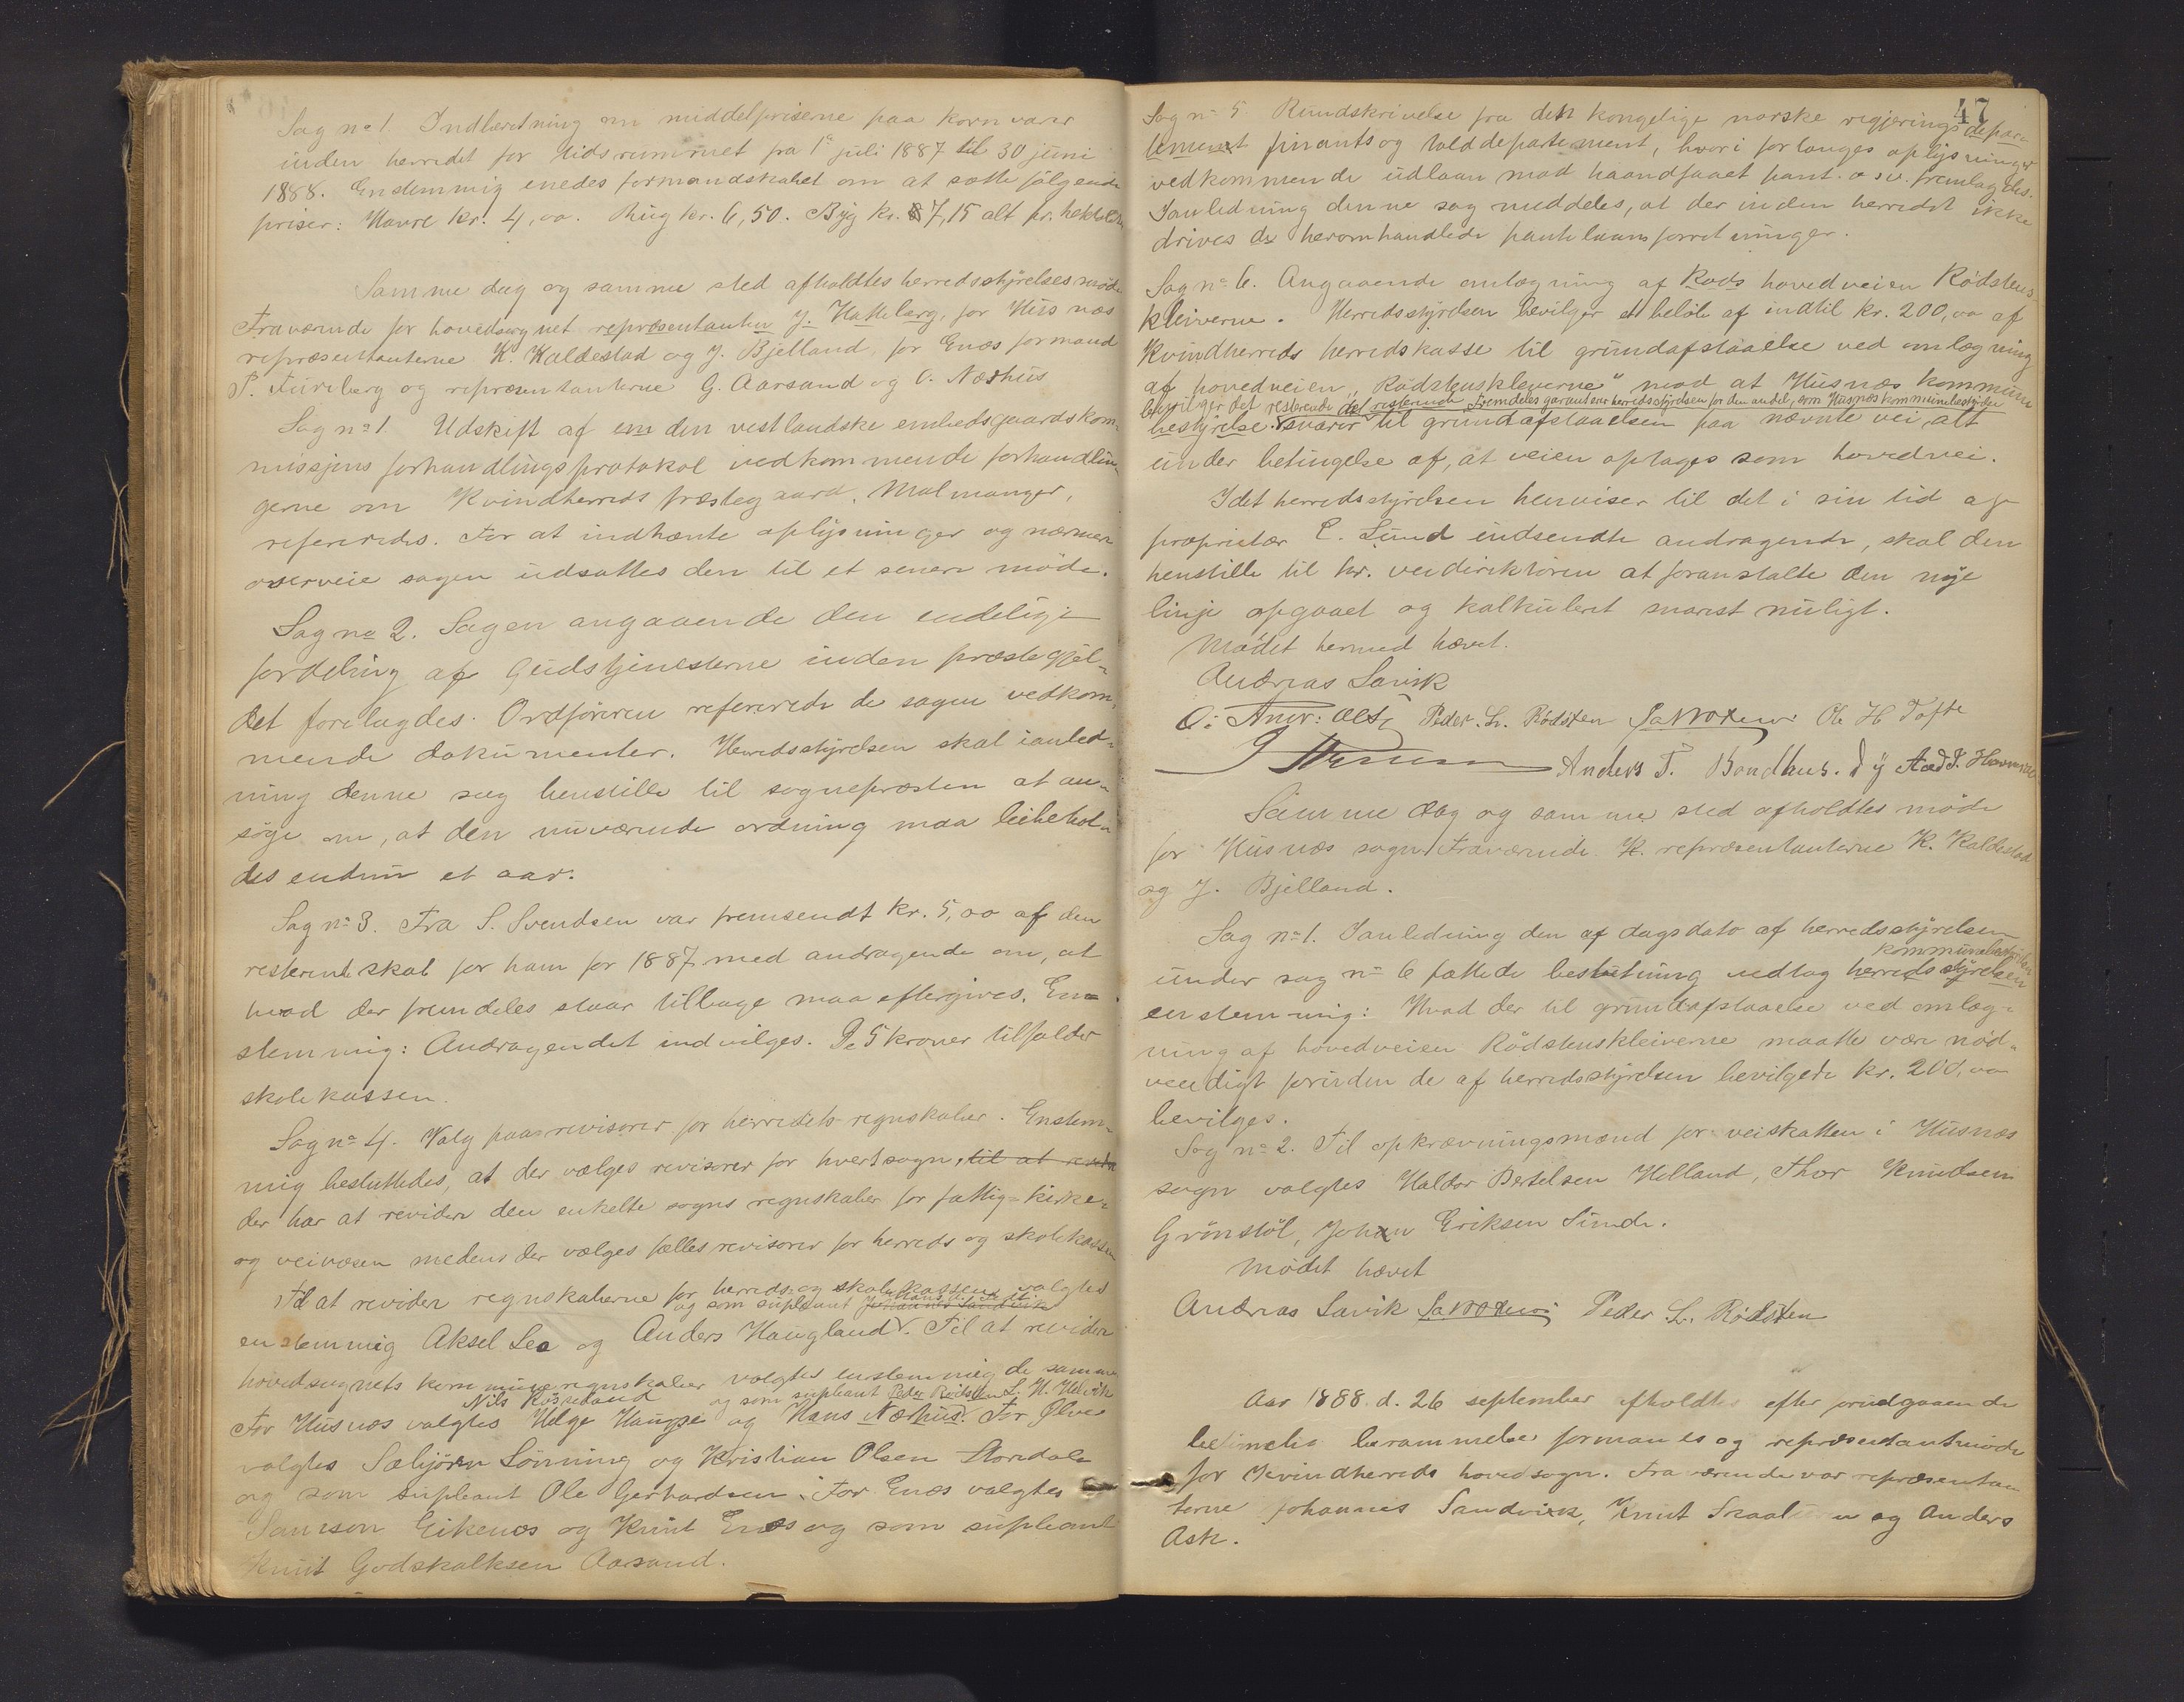 Sag no 1. Indberetning om middelpriserne paa kornvarer
inden herredet for tidsrummet fra 1ste juli 1887 til 30 juni
1888. Enstemmig enedes formandskabet om at sætte følgende
priser: Havre kr. 4,00. Rug kr. 6,50. Byg kr. 7,15 alt pr. hektoliter
Samme dag og samme sted afholdtes herredsstyrelsesmøde
Fraværende for hovedsognet repræsentanten J. Hatteberg, for Husnæs
repræsentanterne K. Kaldestad og J. Bjelland, for Enæs formand
P. Fureberg og repræsentanterne G. Aarsand og O. Nærhus
Sag no 1. Udskift af den vestlandske embedsgaardskom-
missjons forhandlingsprotokol vedkommende forhandlin-
gerne om Kvindherreds præstegaard, Malmanger,
refereredes. For at indhænte oplysninger og nærmere
overveie sagen udsattes den til et senere møde.
Sag no 2. Sagen angaaende den endelige
fordeling af Gudstjenesterne inden præstegjel-
det forelagdes. Ordføreren refererede de sagen vedkom-
mende dokumenter. Herredsstyrelsen skal ianled-
ning denne sag henstille til sognepræsten at an-
søge om, at den nuværende ordning maa beibehol-
des endnu et aar.
Sag no 3. Fra S. Svendsen var fremsendt kr. 5,00 af den
resterende skat for ham for 1887 med andragende om, at
hvad der fremdeles staar tilbage maa eftergives. En-
stemmig: Andragendet indvilges. De 5 kroner tilfalder
skolekassen.
Sag no 4. Valg paa revisorer for herredets regnskaber. Enstem-
mig besluttedes, at der vælges revisorer for hvert sogn, til at
der har at revidere den enkelte sogns regnskaber for fattig- kirke-
og veivæsen medens der vælges fælles revisorer for herreds og skolekassen
Til at revidere regnskaberne for herreds- og skolekassen valgtes
og som supleant Johannes Sandvik
enstemmig Aksel Lea og Anders Haugland. Til at revidere
hovedsognets kommuneregnskaber valgtes enstemmig de samme
Nils og som supleant Peder Rødsten L. H. Helvik
For Husnæs valgtes Helge Hauge og Hans Nærhus. For Ølve
valgtes Sæbjørn Lønning og Kristian Olsen Storedale
og som supleant Ole Gerhardsen. For Enæs valgtes
Samson Eikenes og Knut Enæs og som supleant
Knut Godskalksen Aarsand.
47
Sag no 5 Rundskrivelse fra det kongelige norske regjerings depar-
tement finants og tolddepartement, hvori forlanges oplysninger
vedkommende udlaan mod haandfaaet pant o.s.v. fremlagdes.
Ianledning denne sag meddeles, at der inden herredet ikke
drives de heromhandlede pantelaansforretninger.
Sag no 6. Angaaende omlægning af Røds hovedveien Rødstens-
kleiverne. Herredsstyrelsen bevilger et beløb af indtil kr. 200,00 af
Kvindherreds herredskasse til grundafstaaelse ved omlægning
af hovedveien "Rødstenskleverne" mod at Husnæs kommune
bevilger det resterende det resterende, Fremdeles garanterer herredsstyrelsen for den andel, som Husnæs kommunebestyrelse
bestyrelse svarer til grundafstaaelsen paa nævnte vei, alt
under betingelse af, at veien optages som hovedvei.
Idet herredsstyrelsen henviser til det i sin tid af
proprietær E. Lund indsendte andragende, skal den
henstille til hr. veidirektøren at foranstalte den nye
linje opgaaet og kalkuleret snarest muligt.
Mødet hermed hævet.
Andreas Savik
Peder. L. Rødsten Ole H Tofte
Anders T. Bondhus.
Samme dag og samme sted afholdtes møde
for Husnæs sogn Fraværende K. repræsentanterne K. Kaldestad
og J. Bjelland.
Sag no 1. Ianledning den af dagsdato af herredsstyrelsen
kommunebestyrelsen
under sag no 6 fattede beslutning vedtog herredsstyrelsen
enstemmig: Hvad der til grundafstaaelse ved omlæg-
ning af hovedveien Rødstenskleiverne maatte være nød-
vendigt foruden de af herredsstyrelsen bevilgede kr. 200,00
bevilges.
Sag no 2. Til opkrævningsmænd for veiskatten i Husnæs
sogn valgtes Haldor Bertelsen Helland, Thor Knudsen
Grønstøl, Johan Eriksen Sunde.
Mødet hævet
Andreas Savik Peder L. Rødsten
Aar 1888 d. 26 september afholdtes efter forudgaaende
betimelig berammelse formands og repræsentantmøde
for Kvindherreds hovedsogn. Fraværende var repræsentan-
terne Johannes Sandvik, Knut Skaaluren og Anders
Ask.